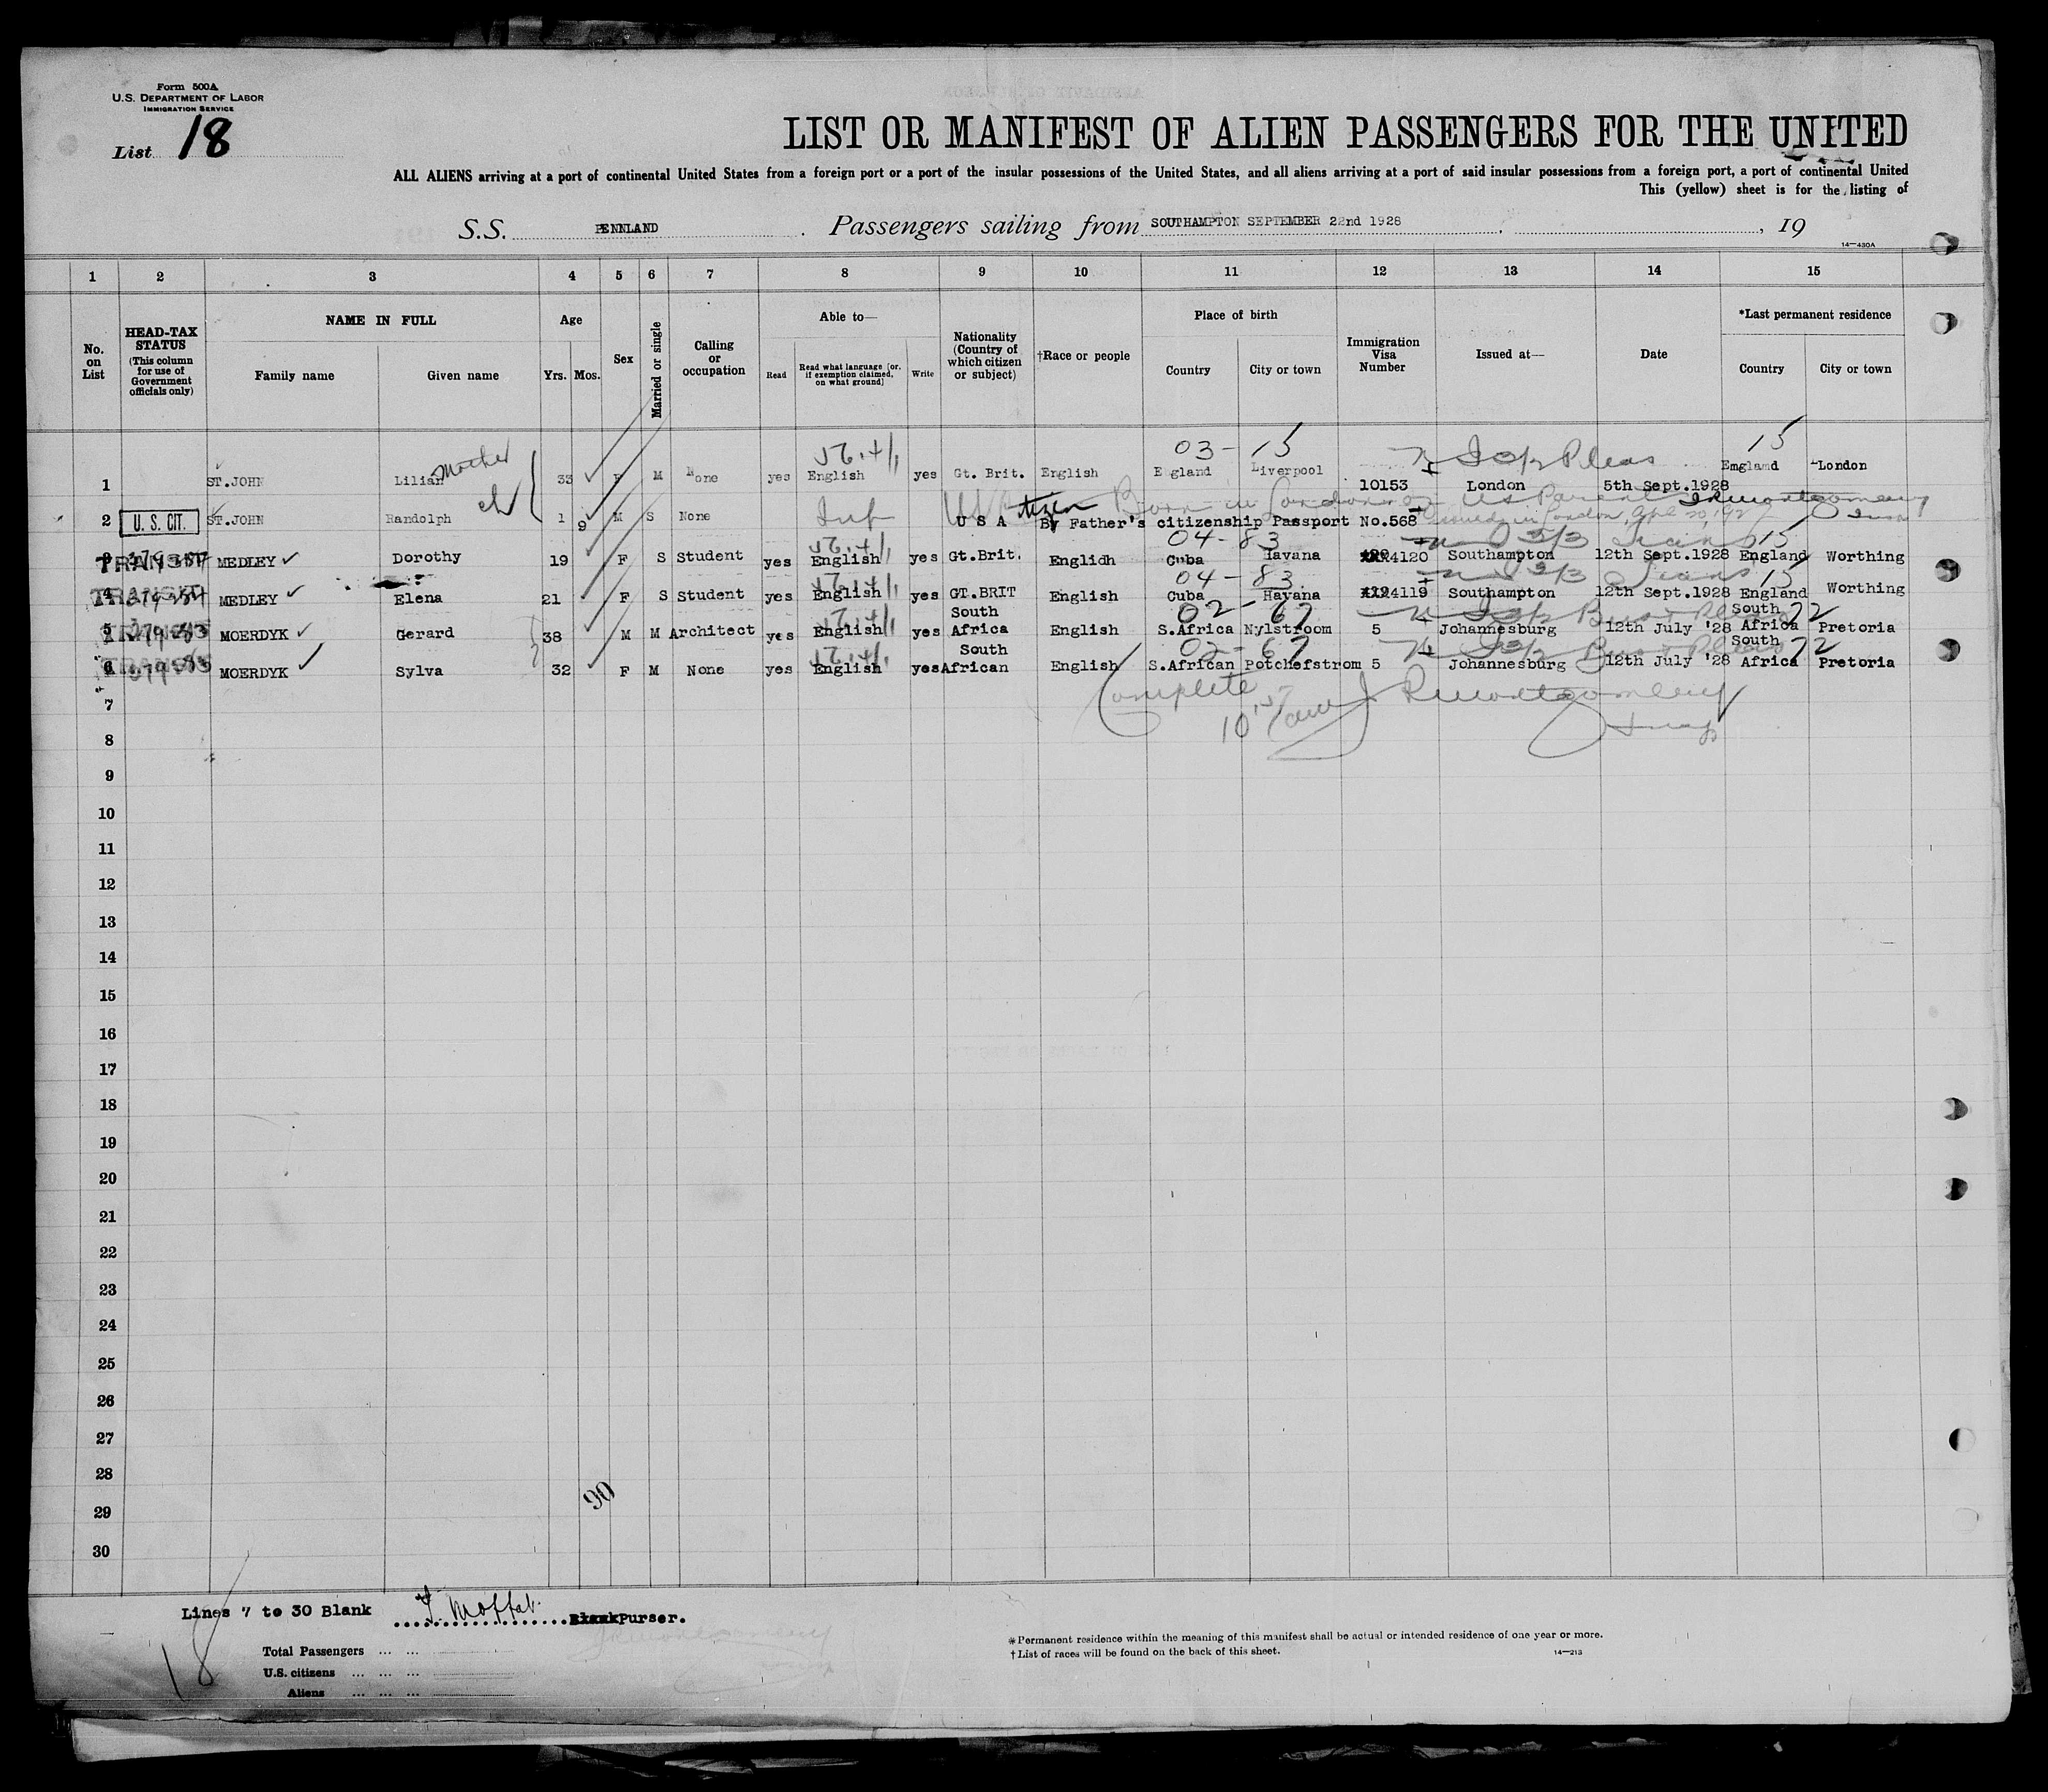 Form 500A
U.S. DEPARTMENT OF LABOR
IMMIGRATION SERVICE
List 18
LIST OR MANIFEST OF ALIEN PASSENGERS FOR THE UNITED
ALL ALIENS arriving at a port of continental United States from a foreign port or a port of the insular possessions of the United States, and all aliens arriving at a port of said insular possessions from a foreign port, a port of continental United
This (yellow) sheet is for the listing of
S.S. PENNLAND. Passengers sailing from SOUTHAMPTON SEPTEMBER 22nd 1928, , 19
14—430A
1 2 3 4 5 6 7 8 9 10 11 12 13 14 15
No. on List
HEAD-TAX STATUS (This column for use of Government officials only)
NAME IN FULL
Family name Given name
Age
Yrs. Mos.
Sex
Married or single
Calling or occupation
Able to—
Read Read what language (or, if exemption claimed, on what ground) Write
Nationality (Country of which citizen or subject)
†Race or people
Place of birth
Country City or town
Immigration Visa Number
Issued at—
Date
*Last permanent residence
Country City or town
03 - 15 15
1 ST.JOHN Lilian Mother 33 F M None yes English yes Gt. Brit. English England Liverpool 10153 London 5th Sept.1928 Emgland London
2 U. S. CIT. ST.JOHN Randolph ch 1 9 M S None Inf U S A By Father's citizenship Passport No.568
04 - 83 15
3 TRANSIT MEDLEY Dorothy 19 F S Student yes English yes Gt.Brit. Englidh Cuba Havana 4120 Southampton 12th Sept.1928 England Worthing
04 - 83 15
4 TRANSIT MEDLEY Elena 21 F S Student yes English yes GT.BRIT English Cuba Havana 4119 Southampton 12th Sept.1928 England Worthing
02 - 67 72
5 TRANSIT MOERDYK Gerard 38 M M Architect yes English yes South Africa English S.Africa Nylstroom 5 Johannesburg 12th July '28 South Africa Pretoria
02 - 67 72
6 TRANSIT MOERDYK Sylva 32 F M None yes English yes South African English S.African Potchefstrom 5 Johannesburg 12th July '28 South Africa Pretoria
Complete
7
8
9
10
11
12
13
14
15
16
17
18
19
20
21
22
23
24
25
26
27
28
90
29
30
Lines 7 to 30 Blank J. Moffat. Purser.
18
Total Passengers ... ...
U.S. citizens ... ... ...
Aliens ... ... ...
*Permanent residence within the meaning of this manifest shall be actual or intended residence of one year or more.
†List of races will be found on the back of this sheet.
14—213